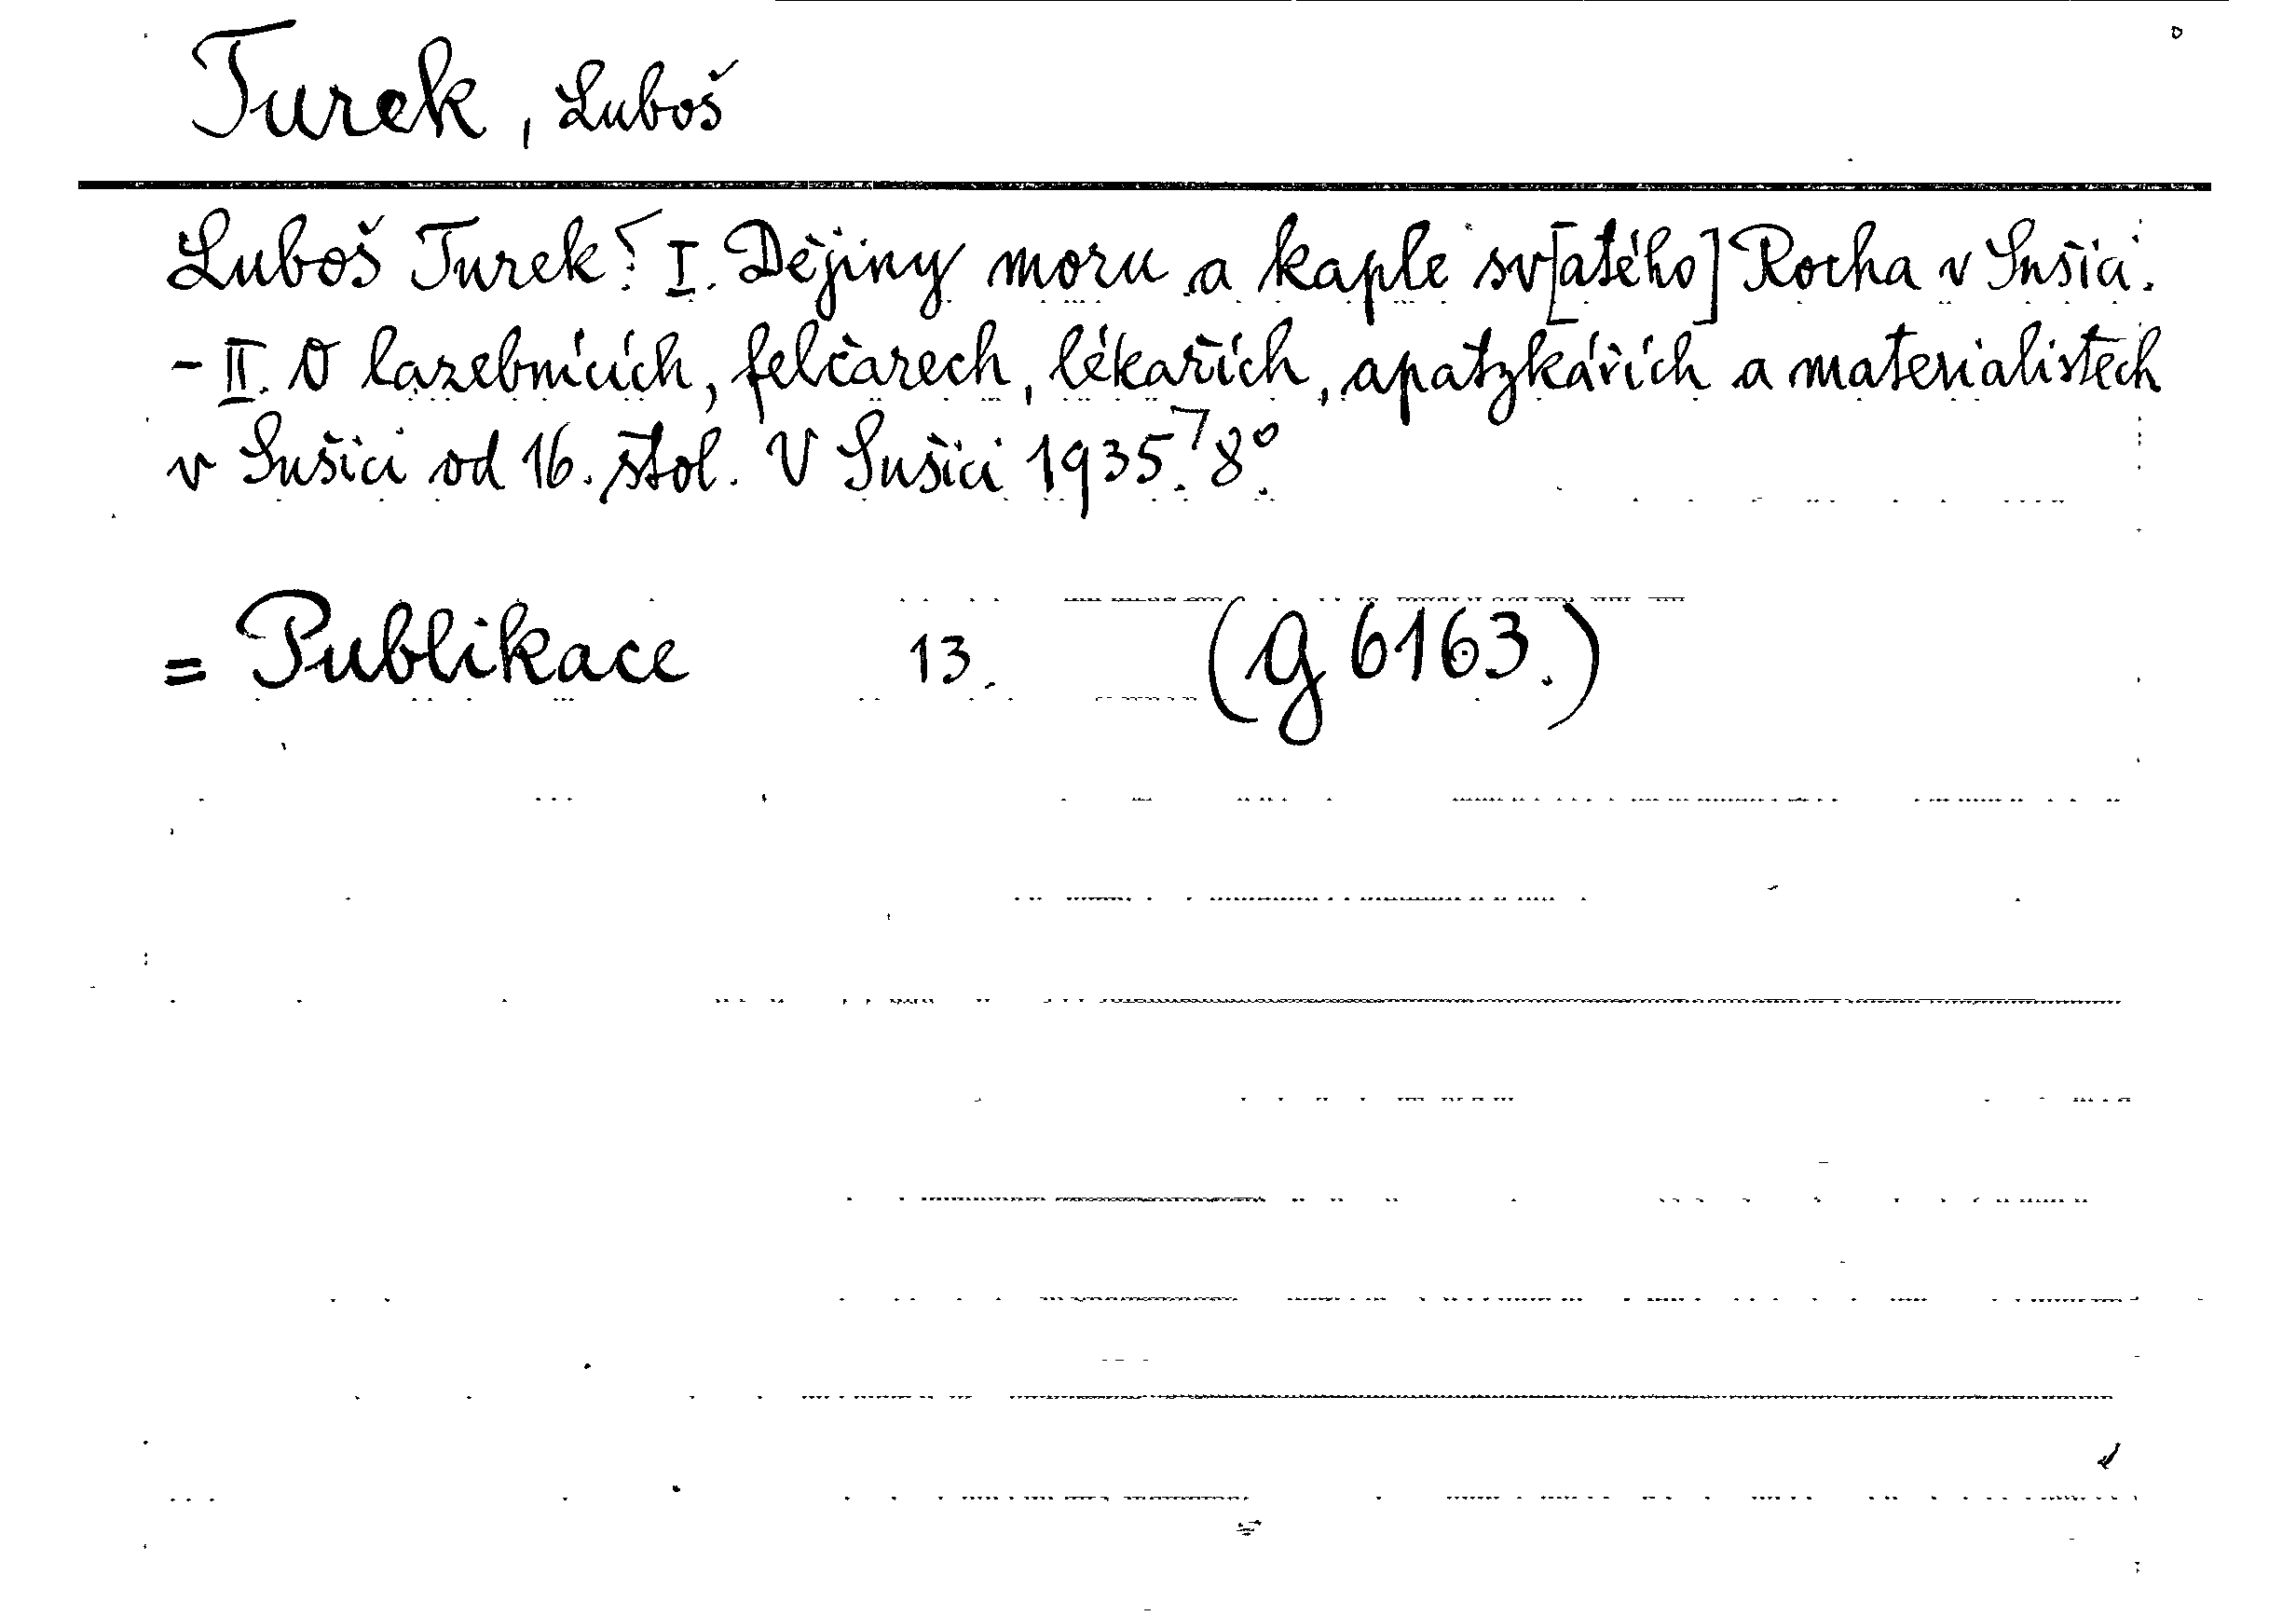 Turek, Luboš
Luboš Turek: I. Dějiny moru a kaple sv[atého] Rocha v Sušici.
- II. O lazebnících, felčarech, lékařích, apatykářích a materialistech
v Sušici od 16. stol. V Sušici 1935. 8°.
= Publikace 13. (g 6163.)